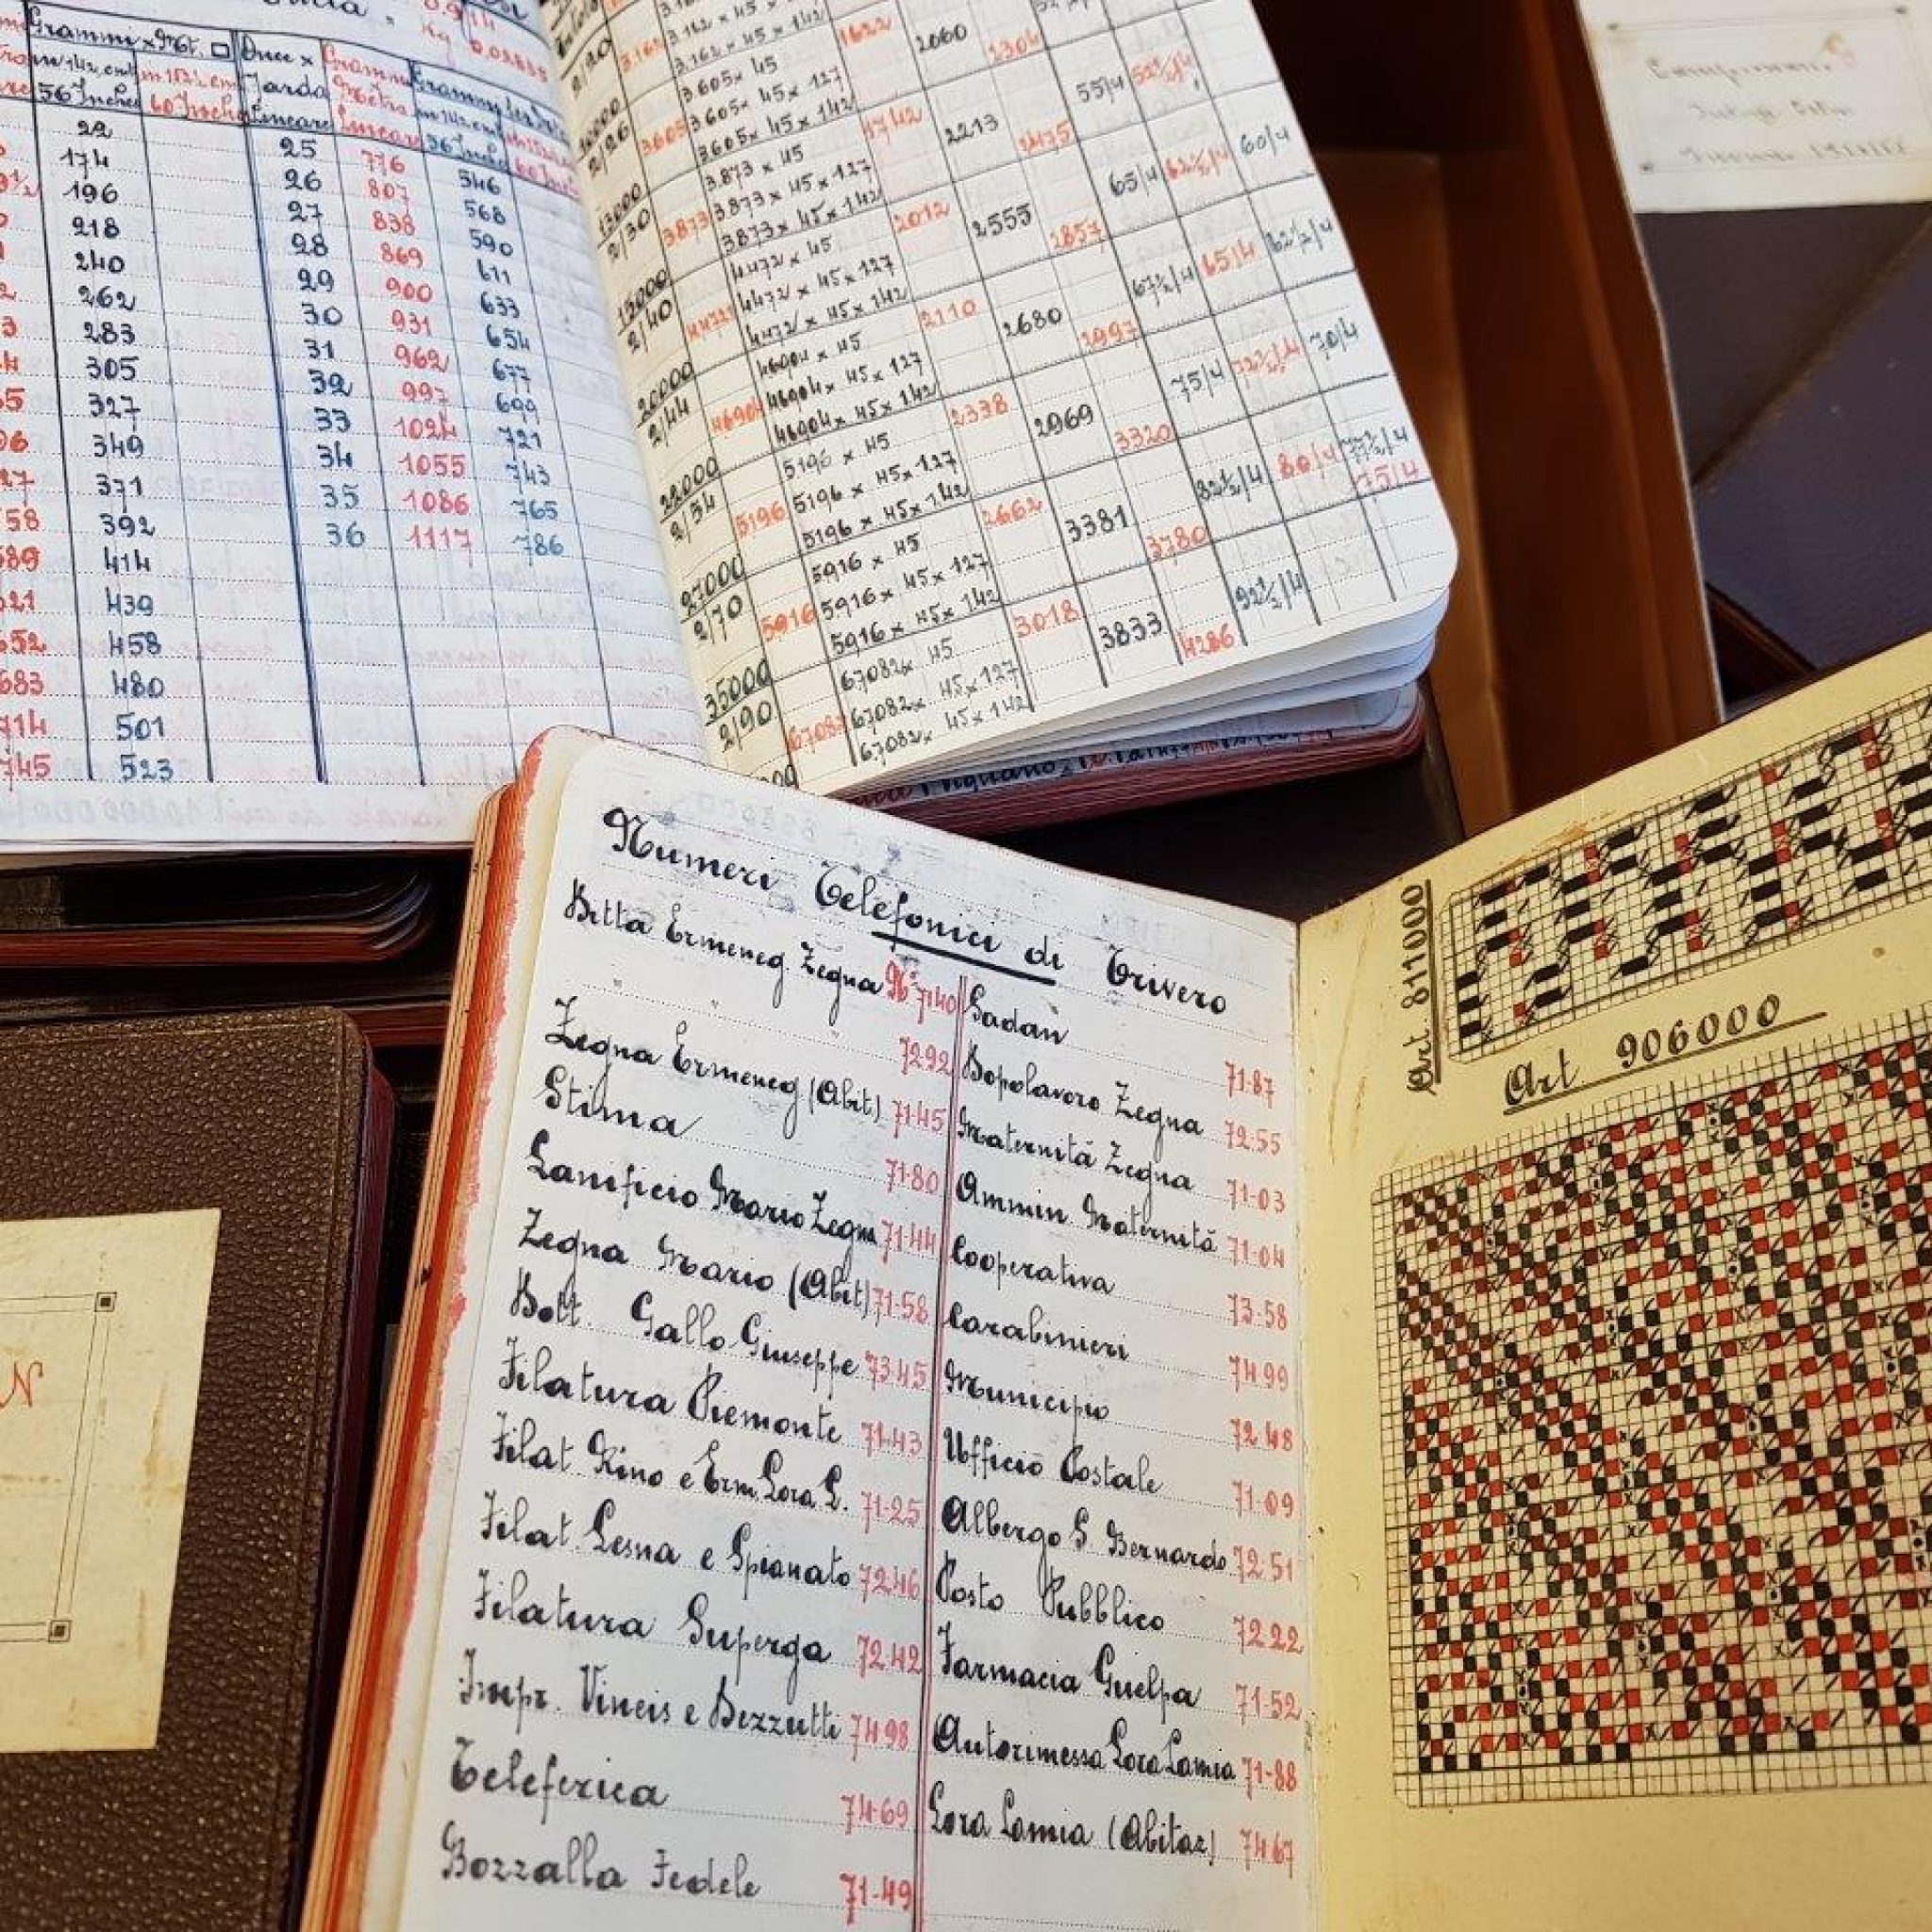 Grammi x Mt. □ Once x Grammi Grammi
m 142 cm m 152½ cm Jarda Metro m 142 cm
56 Inches 60 Inches Lineare Lineare 56 Inches 60 Inches
22 25 776 546
174 26 807 568
196 27 838 590
218 28 869 611
240 29 900 633
262 30 931 654
283 31 962 677
305 32 997 699
327 33 1024 721
349 34 1055 743
371 35 1086 765
392 36 1117 786
414
439
458
480
501
523
Kg 0.02835
3.162 x 45 x 142
1622 2060 2304
2/26 3605 3.605 x 45
3.605 x 45 x 127
3.605 x 45 x 142
1742 2213 2475 55/4 52½/4
13000
2/30 3873 3.873 x 45
3.873 x 45 x 127
3.873 x 45 x 142
2012 2555 2857 65/4 62½/4 60/4
15000
2/40 4472 4472 x 45
4472 x 45 x 127
4472 x 45 x 142
2110 2680 2997 67½/4 65/4 62½/4
20000
2/44 46904 46904 x 45
46904 x 45 x 127
46904 x 45 x 142
2338 2969 3320 75/4 72½/4 70/4
22000
2/54 5196 5196 x 45
5196 x 45 x 127
5196 x 45 x 142
2662 3381 3780 82½/4 80/4 77½/4
75/4
27000
2/70 5916 5916 x 45
5916 x 45 x 127
5916 x 45 x 142
3018 3833 4286 92½/4
35000
2/90 67082 67082 x 45
67082 x 45 x 127
67082 x 45 x 142
Numeri Telefonici di Trivero
Ditta Ermeneg. Zegna N° 7140
" " 7292
Zegna Ermeneg (Abit) 71-45
Stima 71-80
Lanificio Mario Zegna 71-44
Zegna Mario (Abit) 71-58
Dott. Gallo Giuseppe 73-45
Filatura Piemonte 71-43
Filat Rino e Erm. Lora L. 71-25
Filat. Lesna e Spianato 72-46
Filatura Superga 72-42
Impr. Vineis e Bezzutti 74-98
Teleferica 74-69
Bozzalla Fedele 71-49
Sadan 71-87
Dopolavoro Zegna 72-55
Maternità Zegna 71-03
Ammin. Maternità 71-04
Cooperativa 73-58
Carabinieri 74-99
Municipio 72-48
Ufficio Postale 71-09
Albergo S. Bernardo 72-51
Posto Pubblico 72-22
Farmacia Guelpa 71-52
Autorimessa Lora Lamia 71-88
Lora Lamia (Abitaz) 74-67
Art. 811000
Art. 906000
N